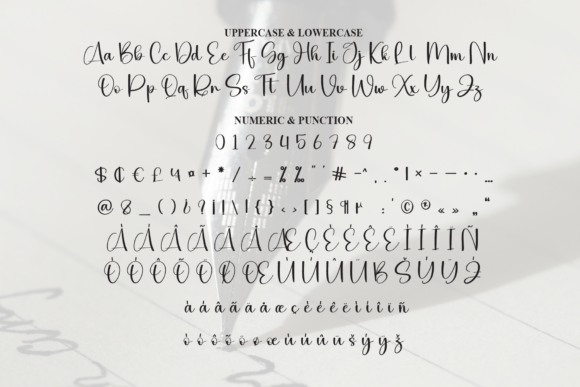 UPPERCASE & LOWERCASE
Aa Bb Cc Dd Ee Ff Gg Hh Ii Jj Kk Ll Mm Nn
Oo Pp Qq Rr Ss Tt Uu Vv Ww Xx Yy Zz
NUMERIC & PUNCTION
0 1 2 3 4 5 6 7 8 9
$ ₵ € £ ¤ + * / ÷ = % ‰ " ' # - ^ . . ° | × – — · . …
@ & _ ( ) ? ! | \ { } ‹ › [ ] § ¶ : ' © ® « » „ “
À Á Â Ã Ä Å Æ Ç È É Ê Ë Ì Í Î Ï Ñ
Ò Ó Ô Õ Ö Ø Œ Ù Ú Û Ü ß Š Ý Ÿ Ž
à á â ã ä å æ ç è é ê ë ì í î ï ñ
ò ó ô õ ö ø œ ù ú û ü š ý ÿ ž